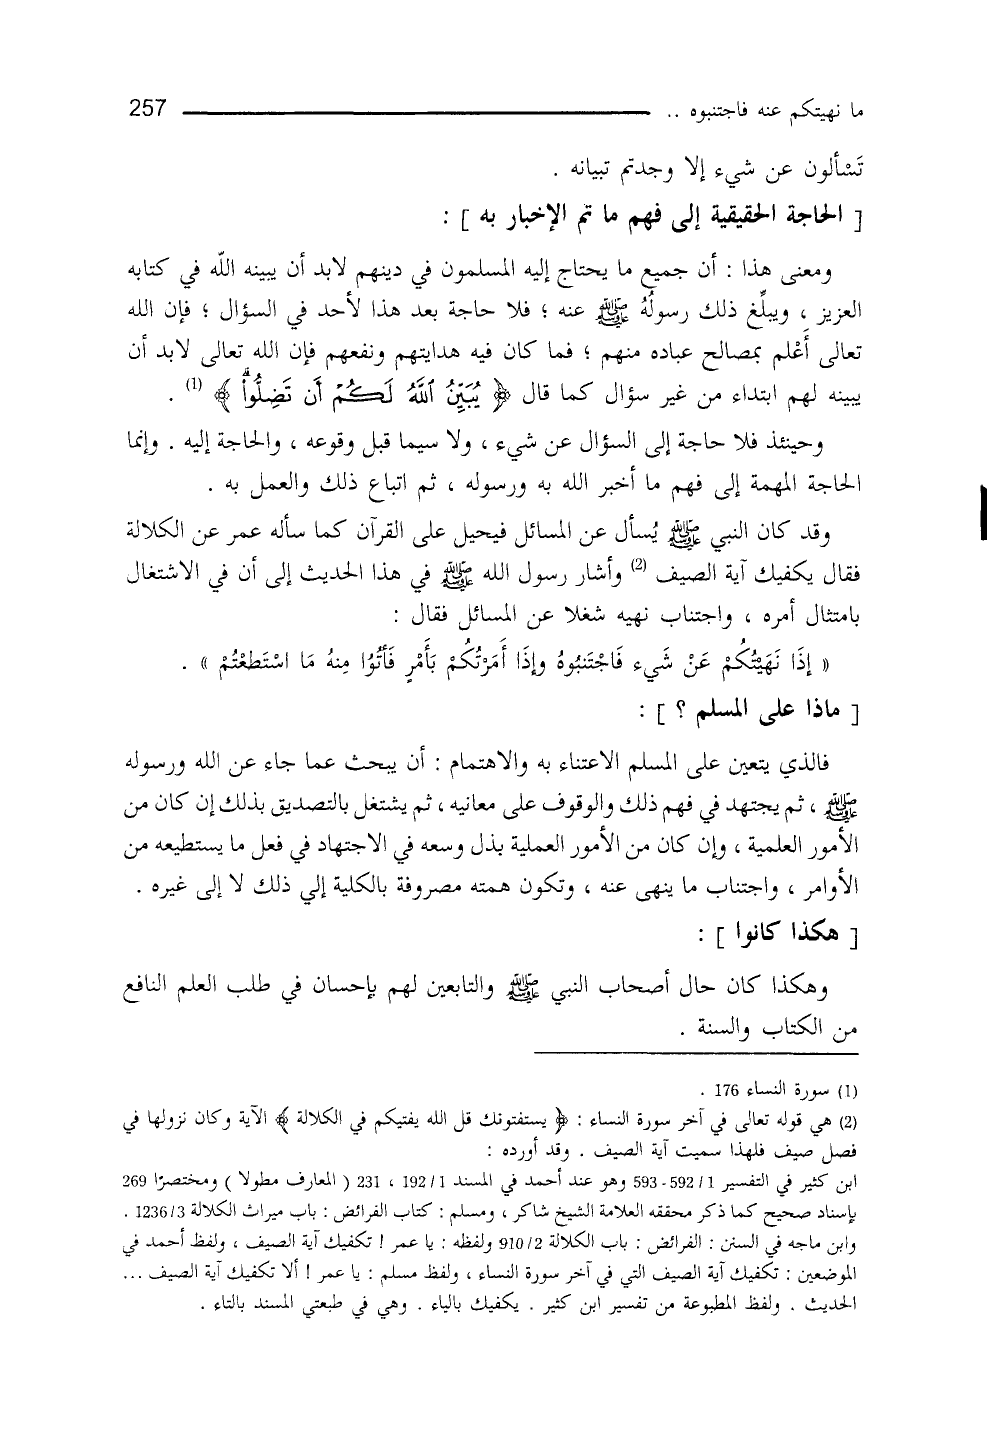 ما نهيتكم عنه فاجتنبوه .. 257
تَسْألون عن شيء إلا وجدتم تبيانه .
[ الحاجة الحقيقية إلى فهم ما تم الإخبار به ] :
ومعنى هذا : أن جميع ما يحتاج إليه المسلمون في دينهم لابد أن يبينه اللّه في كتابه
العزيز ، ويبلِّغ ذلك رسولُهُ ﷺ عنه ؛ فلا حاجة بعد هذا لأحد في السؤال ؛ فإن الله
تعالى أَعْلم بمصالح عباده منهم ؛ فما كان فيه هدايتهم ونفعهم فإن الله تعالى لابد أن
يبينه لهم ابتداء من غير سؤال كما قال ﴿ يُبَيِّنُ ٱللَّهُ لَكُمْ أَن تَضِلُّواْ ﴾ (1) .
وحينئذ فلا حاجة إلى السؤال عن شيء ، ولا سيما قبل وقوعه ، والحاجة إليه . وإنما
الحاجة المهمة إلى فهم ما أخبر الله به ورسوله ، ثم اتباع ذلك والعمل به .
وقد كان النبي ﷺ يُسأل عن المسائل فيحيل على القرآن كما سأله عمر عن الكلالة
فقال يكفيك آية الصيف (2) وأشار رسول الله ﷺ في هذا الحديث إلى أن في الاشتغال
بامتثال أمره ، واجتناب نهيه شغلا عن المسائل فقال :
« إِذَا نَهَيْتُكُمْ عَنْ شَيء فَاجْتَنبُوهُ وإِذَا أَمَرْتُكُمْ بَأَمْرٍ فَأْتُوُا مِنهُ مَا اسْتَطعْتُمْ » .
[ ماذا على المسلم ؟ ] :
فالذي يتعين على المسلم الاعتناء به والاهتمام : أن يبحث عما جاء عن الله ورسوله
ﷺ ، ثم يجتهد في فهم ذلك والوقوف على معانيه ، ثم يشتغل بالتصديق بذلك إن كان من
الأمور العلمية ، وإن كان من الأمور العملية بذل وسعه في الاجتهاد في فعل ما يستطيعه من
الأوامر ، واجتناب ما ينهى عنه ، وتكون همته مصروفة بالكلية إلي ذلك لا إلى غيره .
[ هكذا كانوا ] :
وهكذا كان حال أصحاب النبي ﷺ والتابعين لهم بإحسان في طلب العلم النافع
من الكتاب والسنة .
(1) سورة النساء 176 .
(2) هي قوله تعالى في آخر سورة النساء : ﴿ يستفتونك قل الله يفتيكم في الكلالة ﴾ الآية وكان نزولها في
فصل صيف فلهذا سميت آية الصيف . وقد أورده :
ابن كثير في التفسير 1/ 592 - 593 وهو عند أحمد في المسند 1/ 192 ، 231 ( المعارف مطولا ) ومختصرًا 269
بإسناد صحيح كما ذكر محققه العلامة الشيخ شاكر ، ومسلم : كتاب الفرائض : باب ميراث الكلالة 3/ 1236 .
وابن ماجه في السنن : الفرائض : باب الكلالة 2/ 910 ولفظه : يا عمر ! تكفيك آية الصيف ، ولفظ أحمد في
الموضعين : تكفيك آية الصيف التي في آخر سورة النساء ، ولفظ مسلم : يا عمر ! ألا تكفيك آية الصيف ...
الحديث . ولفظ المطبوعة من تفسير ابن كثير . يكفيك بالياء . وهي في طبعتي المسند بالتاء .